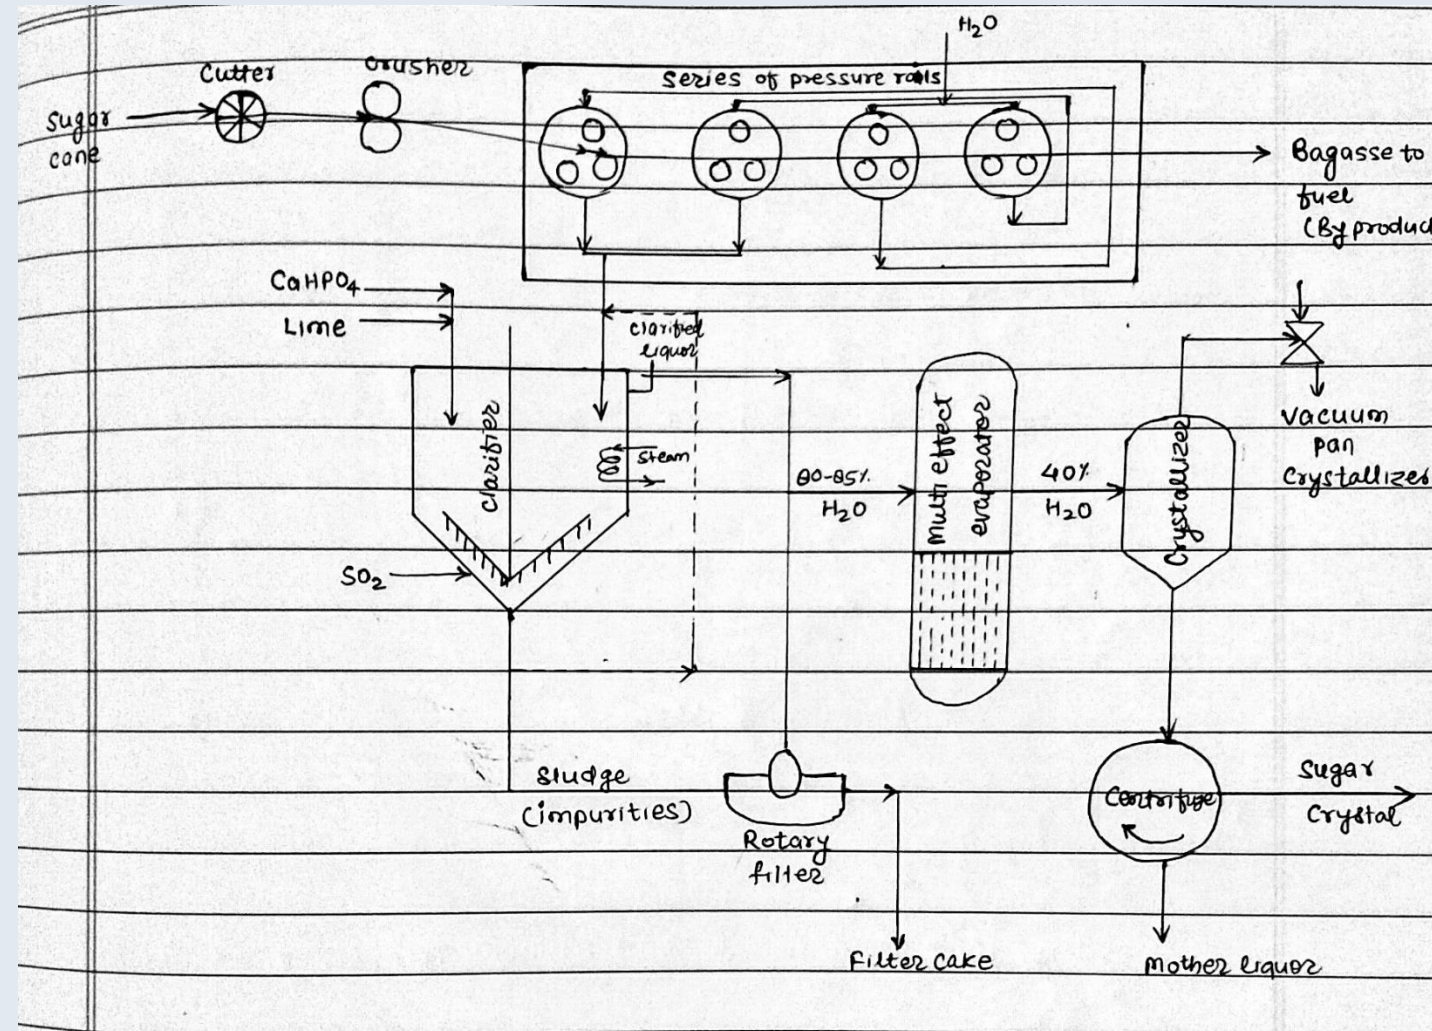 H₂O
Cutter
Crusher
Series of pressure rolls
Sugar
cane
Bagasse to
fuel
(By produc
CaHPO₄
Lime
Clarified
liquor
Clarifier
Steam
SO₂
80-85%
H₂O
Multi effect
evaporator
40%
H₂O
Crystallizer
Vacuum
pan
Crystallizer
Sludge
(impurities)
Rotary
filter
Centrifuge
Sugar
Crystal
Filter Cake
Mother liquor